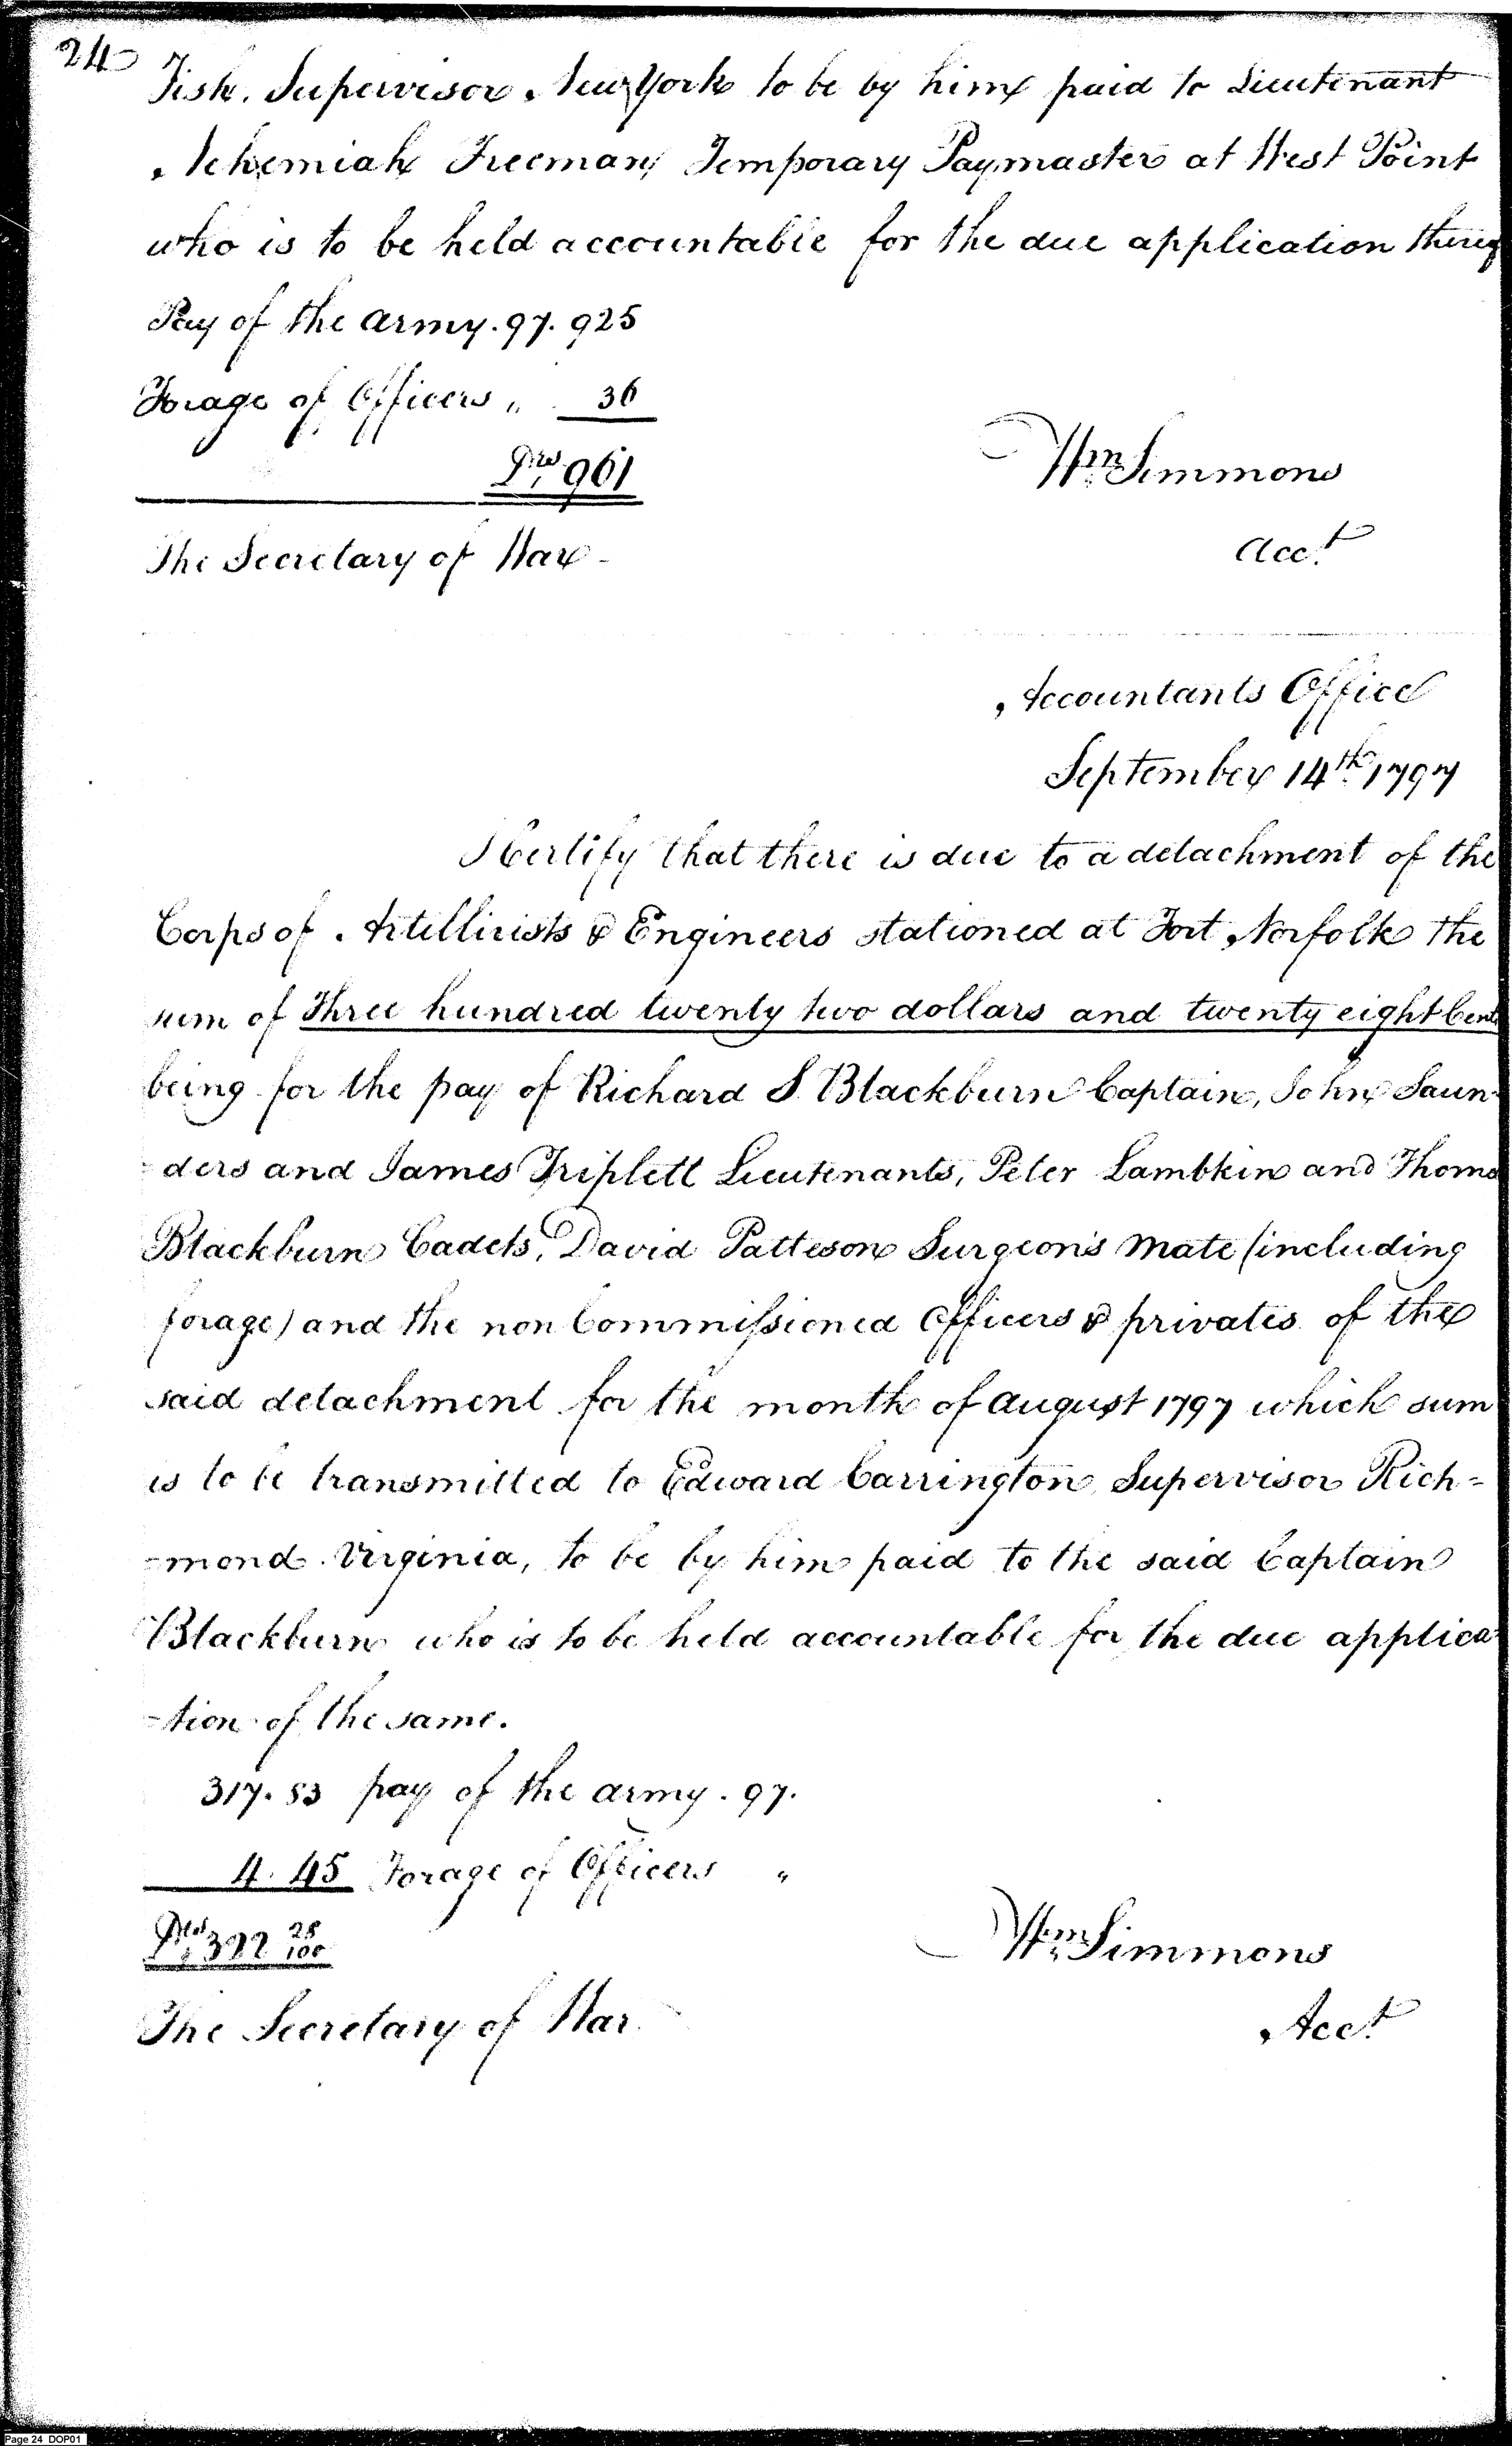 24
Fish. Supervisor New York to be by him paid to Lieutenant
Nehemiah Freeman, Temporary Paymaster at West Point
who is to be held accountable for the due application thereof
Pay of the army. 97. 925
Forage of Officers " 36
Drs 961
Wm Simmons
The Secretary of War
Acct
Accountants Office
September 14th 1797
I Certify that there is due to a detachment of the
Corps of Artillirists & Engineers stationed at Fort Norfolk the
sum of Three hundred twenty two dollars and twenty eight Cents
being for the pay of Richard S. Blackburn Captain, John Saun-
-ders and James Triplett Lieutenants, Peter Lambkin and Thomas
Blackburn Cadets, David Patteson Surgeon's Mate (including
forage) and the non Commissioned Officers & privates of the
said detachment for the month of August 1797 which sum
is to be transmitted to Edward Carrington Supervisor Rich=
=mond Virginia, to be by him paid to the said Captain
Blackburn who is to be held accountable for the due applica-
-tion of the same.
317. 83 pay of the army. 97.
4. 45 Forage of Officers "
Drs 322 28/100
Wm Simmons
The Secretary of War
Acct
Page 24 DOP01